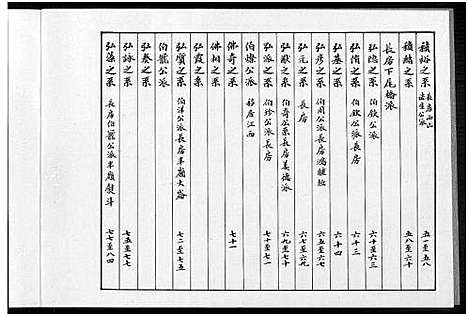 積裕之系 長房西山 添生公派 五一至五八
積勳之系 五八至六十
長房下尾橋派
弘隐之系 伯欽公派 六十至六三
弘侑之系 伯欽公長房 六十三
弘基之系 六十四
弘彥之系 伯周公派長房鴻腰短 六五至六七
弘元之系 長房 六七至六九
弘猷之系 伯奇公系長房美德派 六九至七十
弘派之系 伯珍公派長房 七十至七一
伯修公派 移居江西
佛奇公派 七十一
佛相之系
弘霞之系
弘質之系 伯洋公派長房半嶺大路 七二至七五
伯龍公派
弘泰之系
弘詠之系 七五至七七
弘藻之系 長房伯龍公派半嶺熨斗 七七至八四